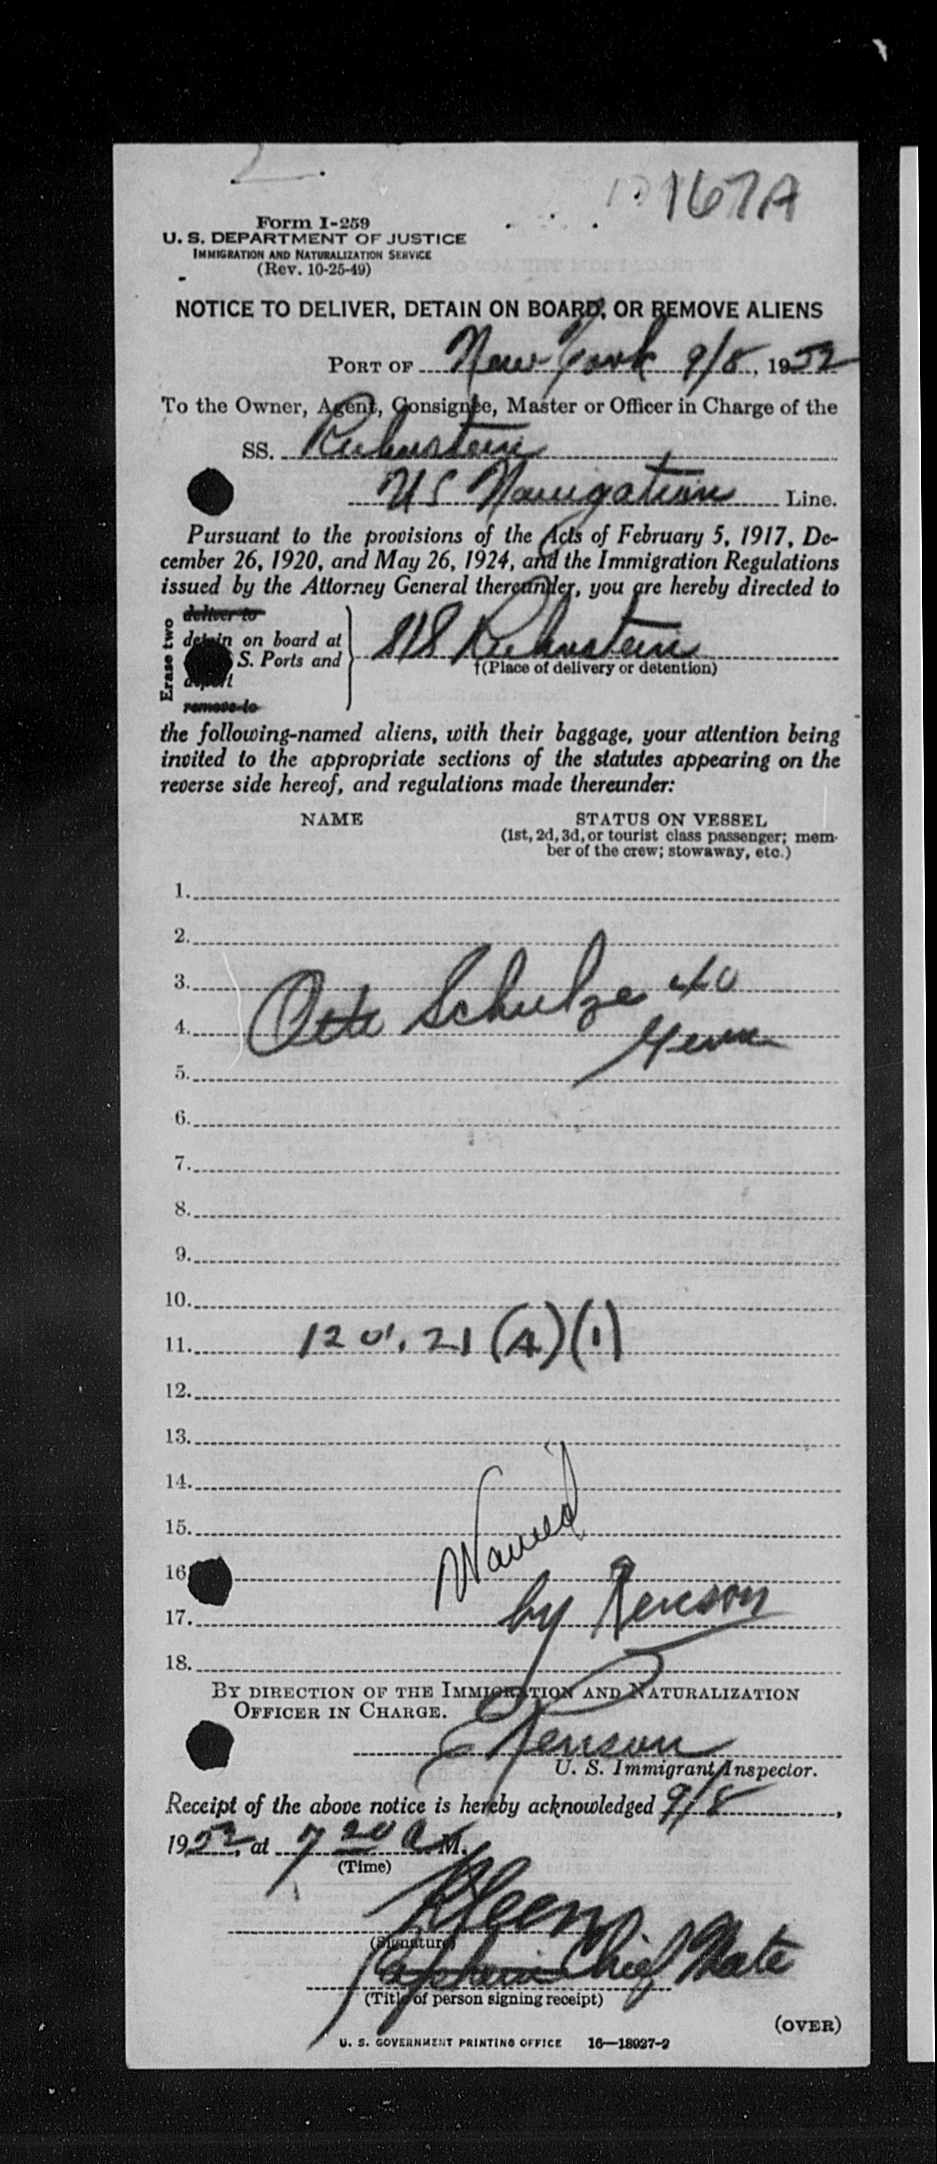 167A
Form I-259
U. S. DEPARTMENT OF JUSTICE
IMMIGRATION AND NATURALIZATION SERVICE
(Rev. 10-25-49)
NOTICE TO DELIVER, DETAIN ON BOARD, OR REMOVE ALIENS
PORT OF New York 9/8, 1952
To the Owner, Agent, Consignee, Master or Officer in Charge of the
SS. Rubenstein
US Navigation Line.
Pursuant to the provisions of the Acts of February 5, 1917, De-
cember 26, 1920, and May 26, 1924, and the Immigration Regulations
issued by the Attorney General thereunder, you are hereby directed to
Erase two
deliver to
detain on board at
S. Ports and
remove to
Rubenstein
†(Place of delivery or detention)
the following-named aliens, with their baggage, your attention being
invited to the appropriate sections of the statutes appearing on the
reverse side hereof, and regulations made thereunder:
NAME STATUS ON VESSEL
(1st, 2d, 3d, or tourist class passenger; mem-
ber of the crew; stowaway, etc.)
1.
2.
3. Otto Schulze 40
4. Germ
5.
6.
7.
8.
9.
10.
11. 120.21 (A)(1)
12.
13.
14.
15. Warned
16
17. by Renison
18.
BY DIRECTION OF THE IMMIGRATION AND NATURALIZATION
OFFICER IN CHARGE.
Renison
U. S. Immigrant Inspector.
Receipt of the above notice is hereby acknowledged 9/8,
1952, at 7 20 A M.
(Time)
Kleen
(Signature)
Captain Chief Mate
(Title of person signing receipt)
(OVER)
U. S. GOVERNMENT PRINTING OFFICE 16—18927-2